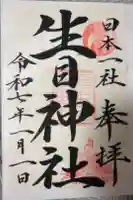 日本一社
奉拝
生目神社
令和七年一月一日